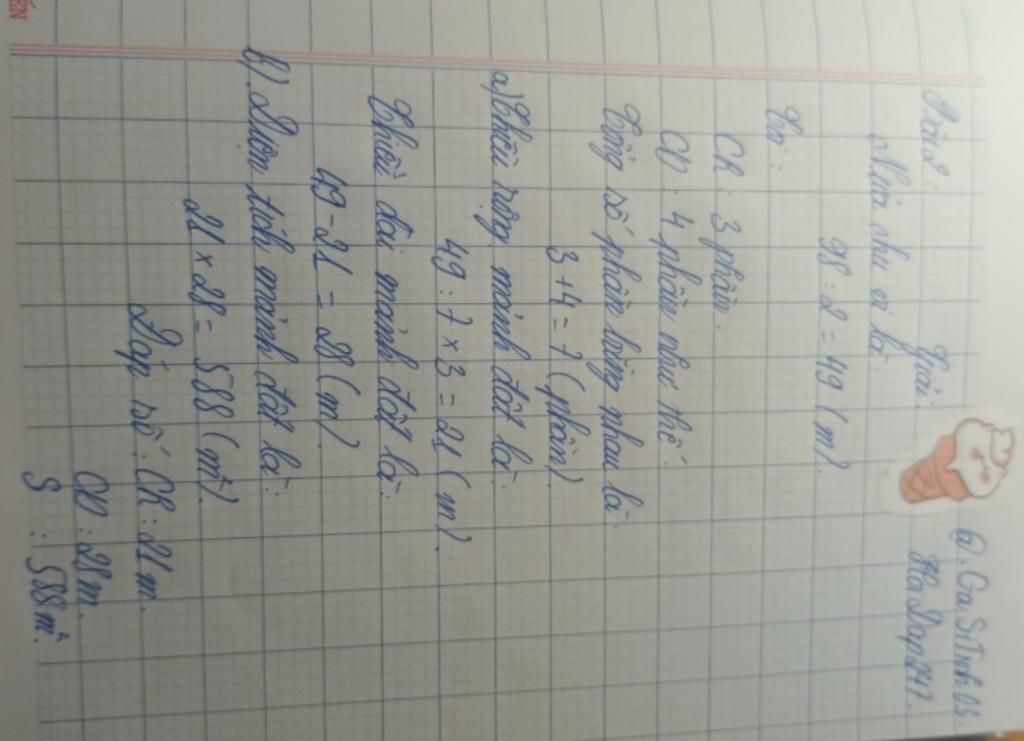 @.Ga.SiTinh 03.
HỏiĐáp247.
Bài 2: Giải:
Nửa chu vi là:
98 : 2 = 49 (m).
Ta có:
CR : 3 phần.
CD : 4 phần như thế.
Tổng số phần bằng nhau là:
3 + 4 = 7 (phần)
a) Chiều rộng mảnh đất là:
49 : 7 x 3 = 21 (m).
Chiều dài mảnh đất là:
49 - 21 = 28 (m)
b) Diện tích mảnh đất là:
21 x 28 = 588 (m²)
Đáp số: CR : 21 m.
CD : 28 m.
S : 588 m².